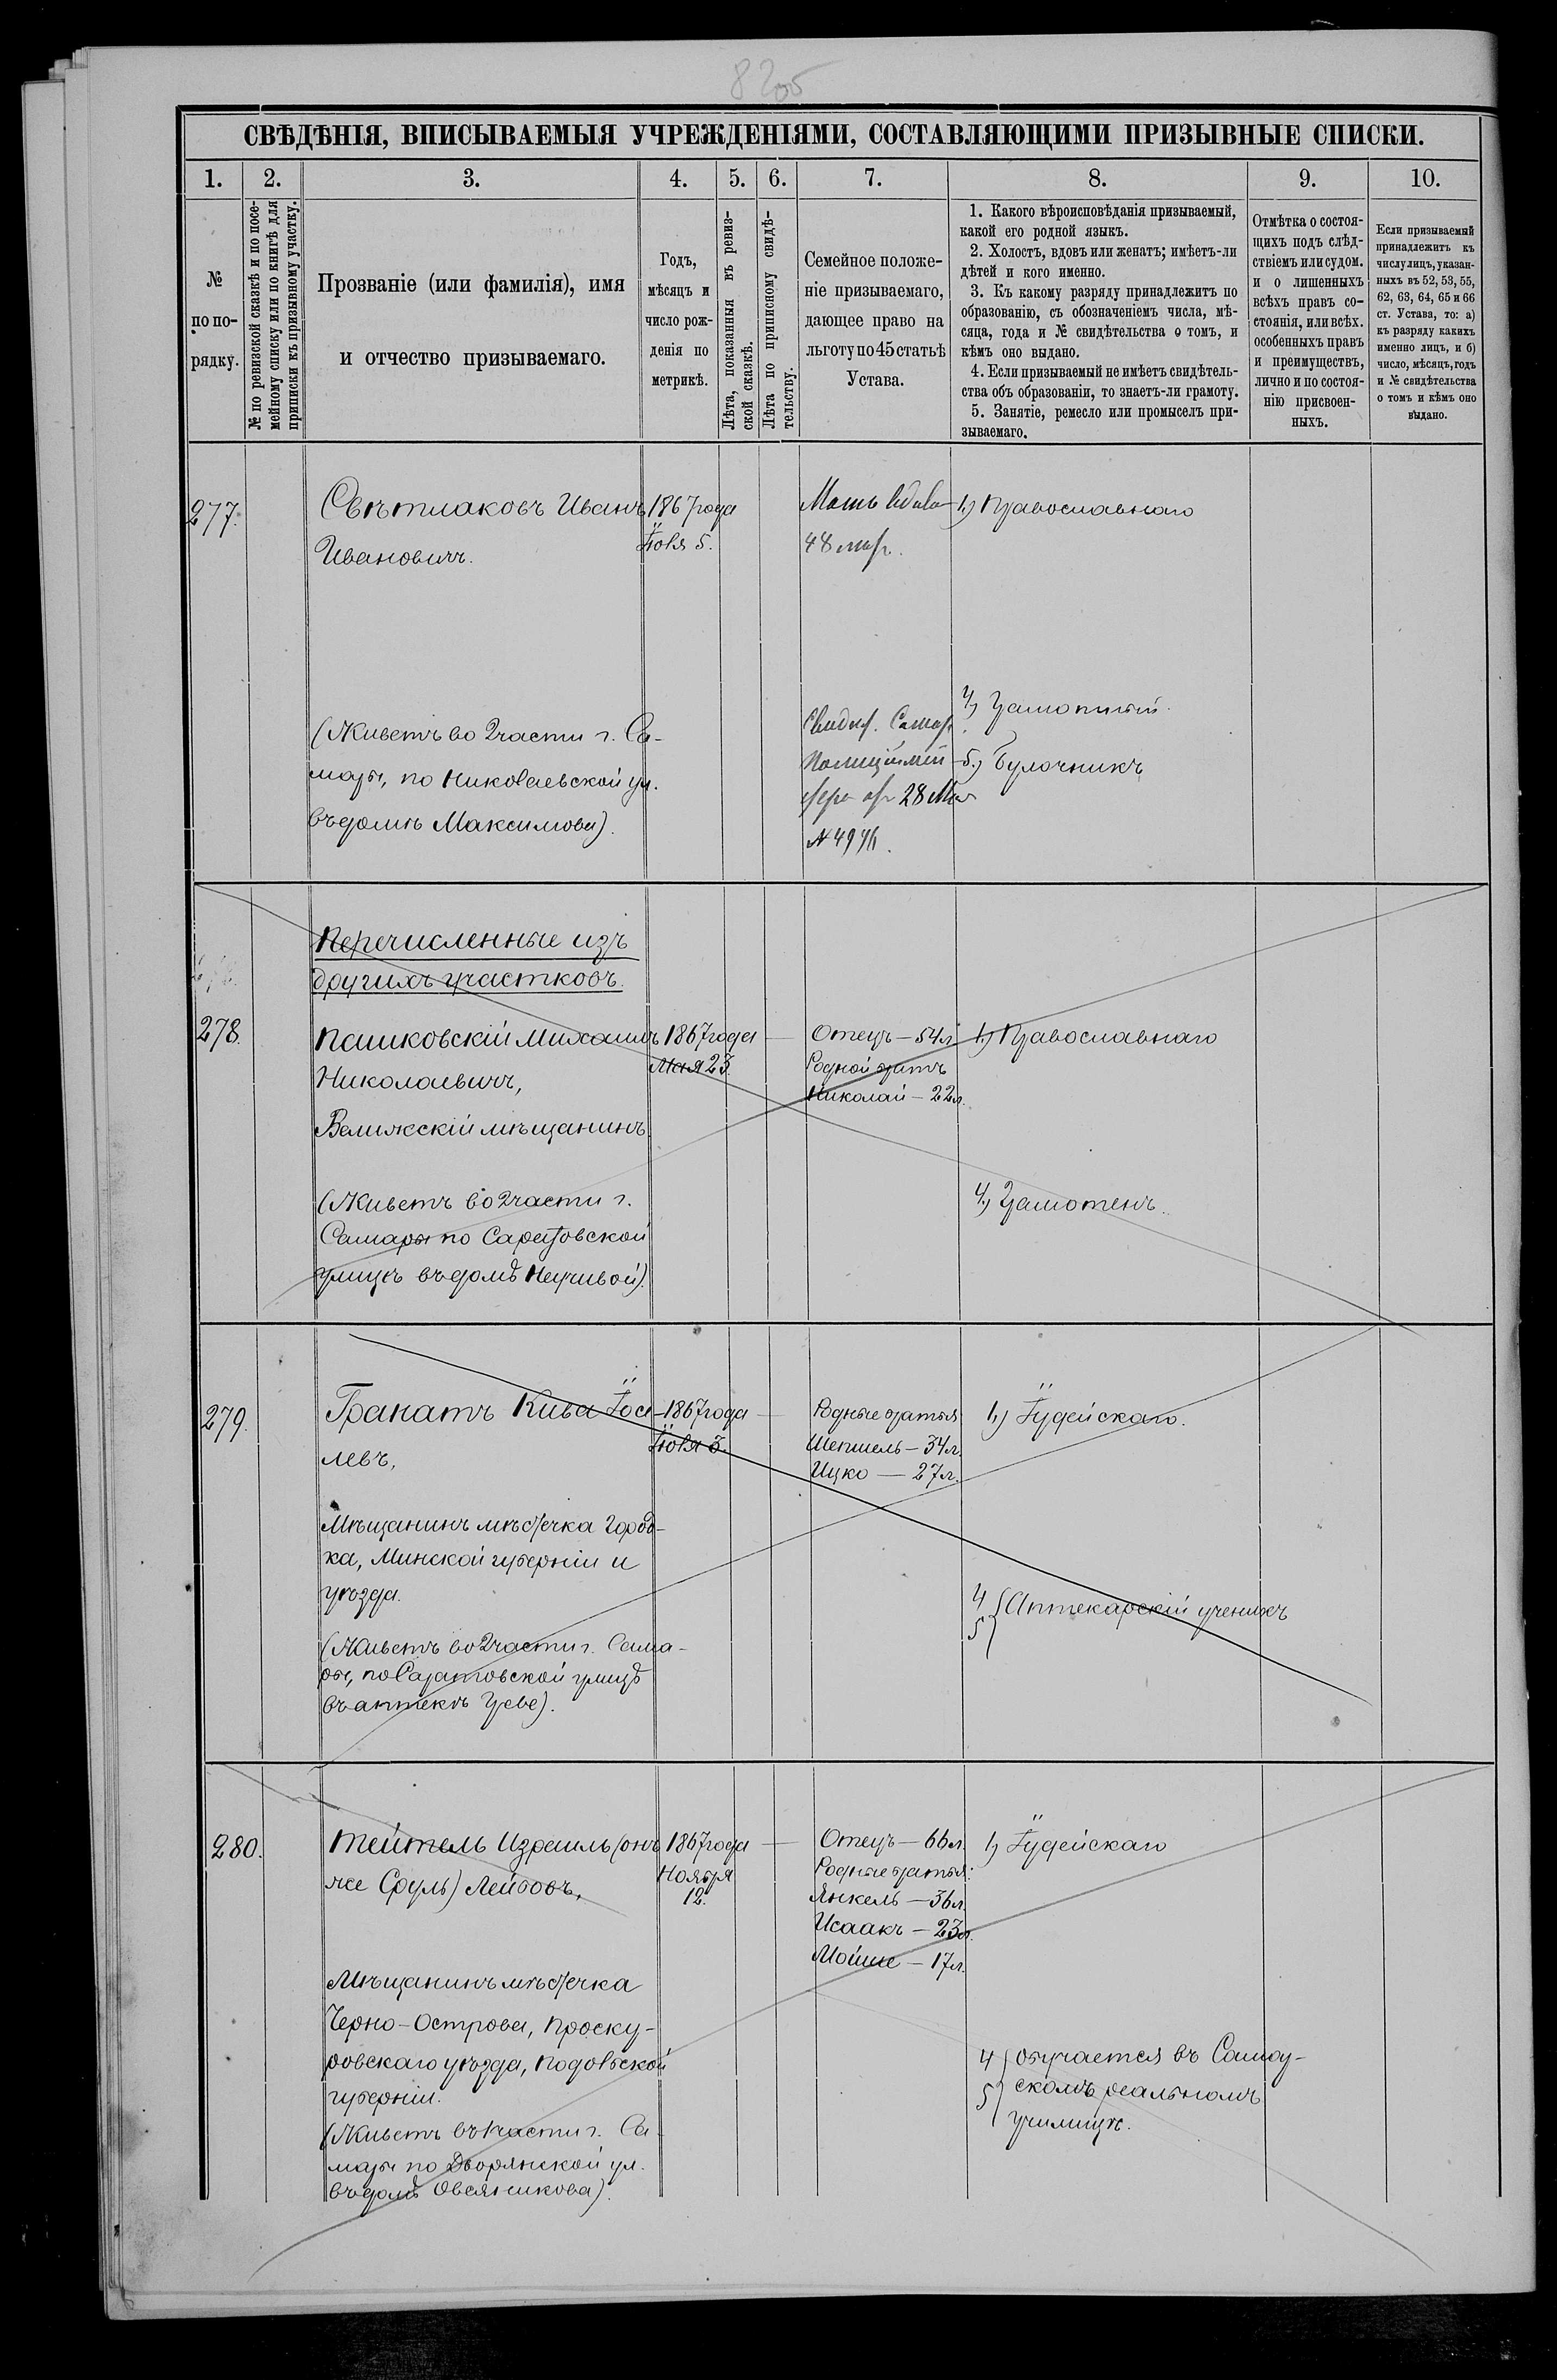 8205
СВѢДѢНІЯ, ВПИСЫВАЕМЫЯ УЧРЕЖДЕНІЯМИ, СОСТАВЛЯЮЩИМИ ПРИЗЫВНЫЕ СПИСКИ.
1.
2.
3.
4.
5.
6.
7.
8.
9.
10.
№
по по-
рядку.
№ по ревизской сказкѣ и по посе-
мейному списку или по книгѣ для
приписки къ призывному участку.
Прозваніе (или фамилія), имя
и отчество призываемаго.
Годъ,
мѣсяцъ и
число рож-
денія по
метрикѣ.
Лѣта, показанныя въ ревиз-
ской сказкѣ.
Лѣта по приписному свидѣ-
тельству.
Семейное положе-
ніе призываемаго,
дающее право на
льготу по 45 статьѣ
Устава.
1. Какого вѣроисповѣданія призываемый,
какой его родной языкъ.
2. Холостъ, вдовъ или женатъ; имѣетъ-ли
дѣтей и кого именно.
3. Къ какому разряду принадлежитъ по
образованію, съ обозначеніемъ числа, мѣ-
сяца, года и № свидѣтельства о томъ, и
кѣмъ оно выдано.
4. Если призываемый не имѣетъ свидѣтель-
ства объ образованіи, то знаетъ-ли грамоту.
5. Занятіе, ремесло или промыселъ при-
зываемаго.
Отмѣтка о состоя-
щихъ подъ слѣд-
ствіемъ или судом.
и о лишенныхъ
всѣхъ правъ со-
стоянія, или всѣх.
особенныхъ правъ
и преимуществъ,
лично и по состоя-
нію присвоен-
ныхъ.
Если призываемый
принадлежитъ къ
числу лицъ, указан-
ныхъ въ 52, 53, 55,
62, 63, 64, 65 и 66
ст. Устава, то: а)
къ разряду какихъ
именно лицъ, и б)
число, мѣсяцъ, годъ
и № свидѣтельства
о томъ и кѣмъ оно
выдано.
277.
Свѣтлаковъ Иванъ
Ивановичъ.
1867 года
Іюля 5.
Мать вдова
48 лѣт.
1.) Православнаго
(Живетъ во 2 части г. Са-
мары, по Николаевской ул.
въ домѣ Максимова).
Свидѣт. Самар.
28 Мая
4.) Грамотный.
5.) Булочникъ
Перечисленные изъ
другихъ участковъ.
278.
Пашковскій Михаилъ
Николаевичъ,
Велижскій мѣщанинъ.
1867 года
Мая 23.
Отецъ — 54 л.
Родной братъ
Николай — 22 л.
1.) Православнаго
(Живетъ во 2 части г.
Самары по Саратовской
улицѣ въ домѣ).
4.) Грамотенъ.
279.
Гранатъ Кива Іосе-
левъ,
1867 года
Іюля 3.
Родные братья
Шепшель — 34 л.
Ицко — 27 л.
1.) Іудейскаго.
Мѣщанинъ мѣстечка Город-
ка, Минской губерніи и
уѣзда.
(Живетъ во 2 части г. Сама-
ры, по Саратовской улицѣ
въ аптекѣ Греве).
4
5 } Аптекарскій ученикъ
280.
Тейтель Израиль (онъ
же Сруль) Лейбовъ,
1867 года
Ноября
12.
Отецъ — 66 л.
Родные братья:
Янкель — 36 л.
Исаакъ — 23 л.
Мойше — 17 л.
1.) Іудейскаго
Мѣщанинъ мѣстечка
Черно-Острова, Проску-
ровскаго уѣзда, Подольской
губерніи.
(Живетъ въ 1 части г. Са-
мары по Дворянской ул.
въ домѣ Овсянникова).
4
5 } Обучается въ Самар-
скомъ реальномъ
училищѣ.